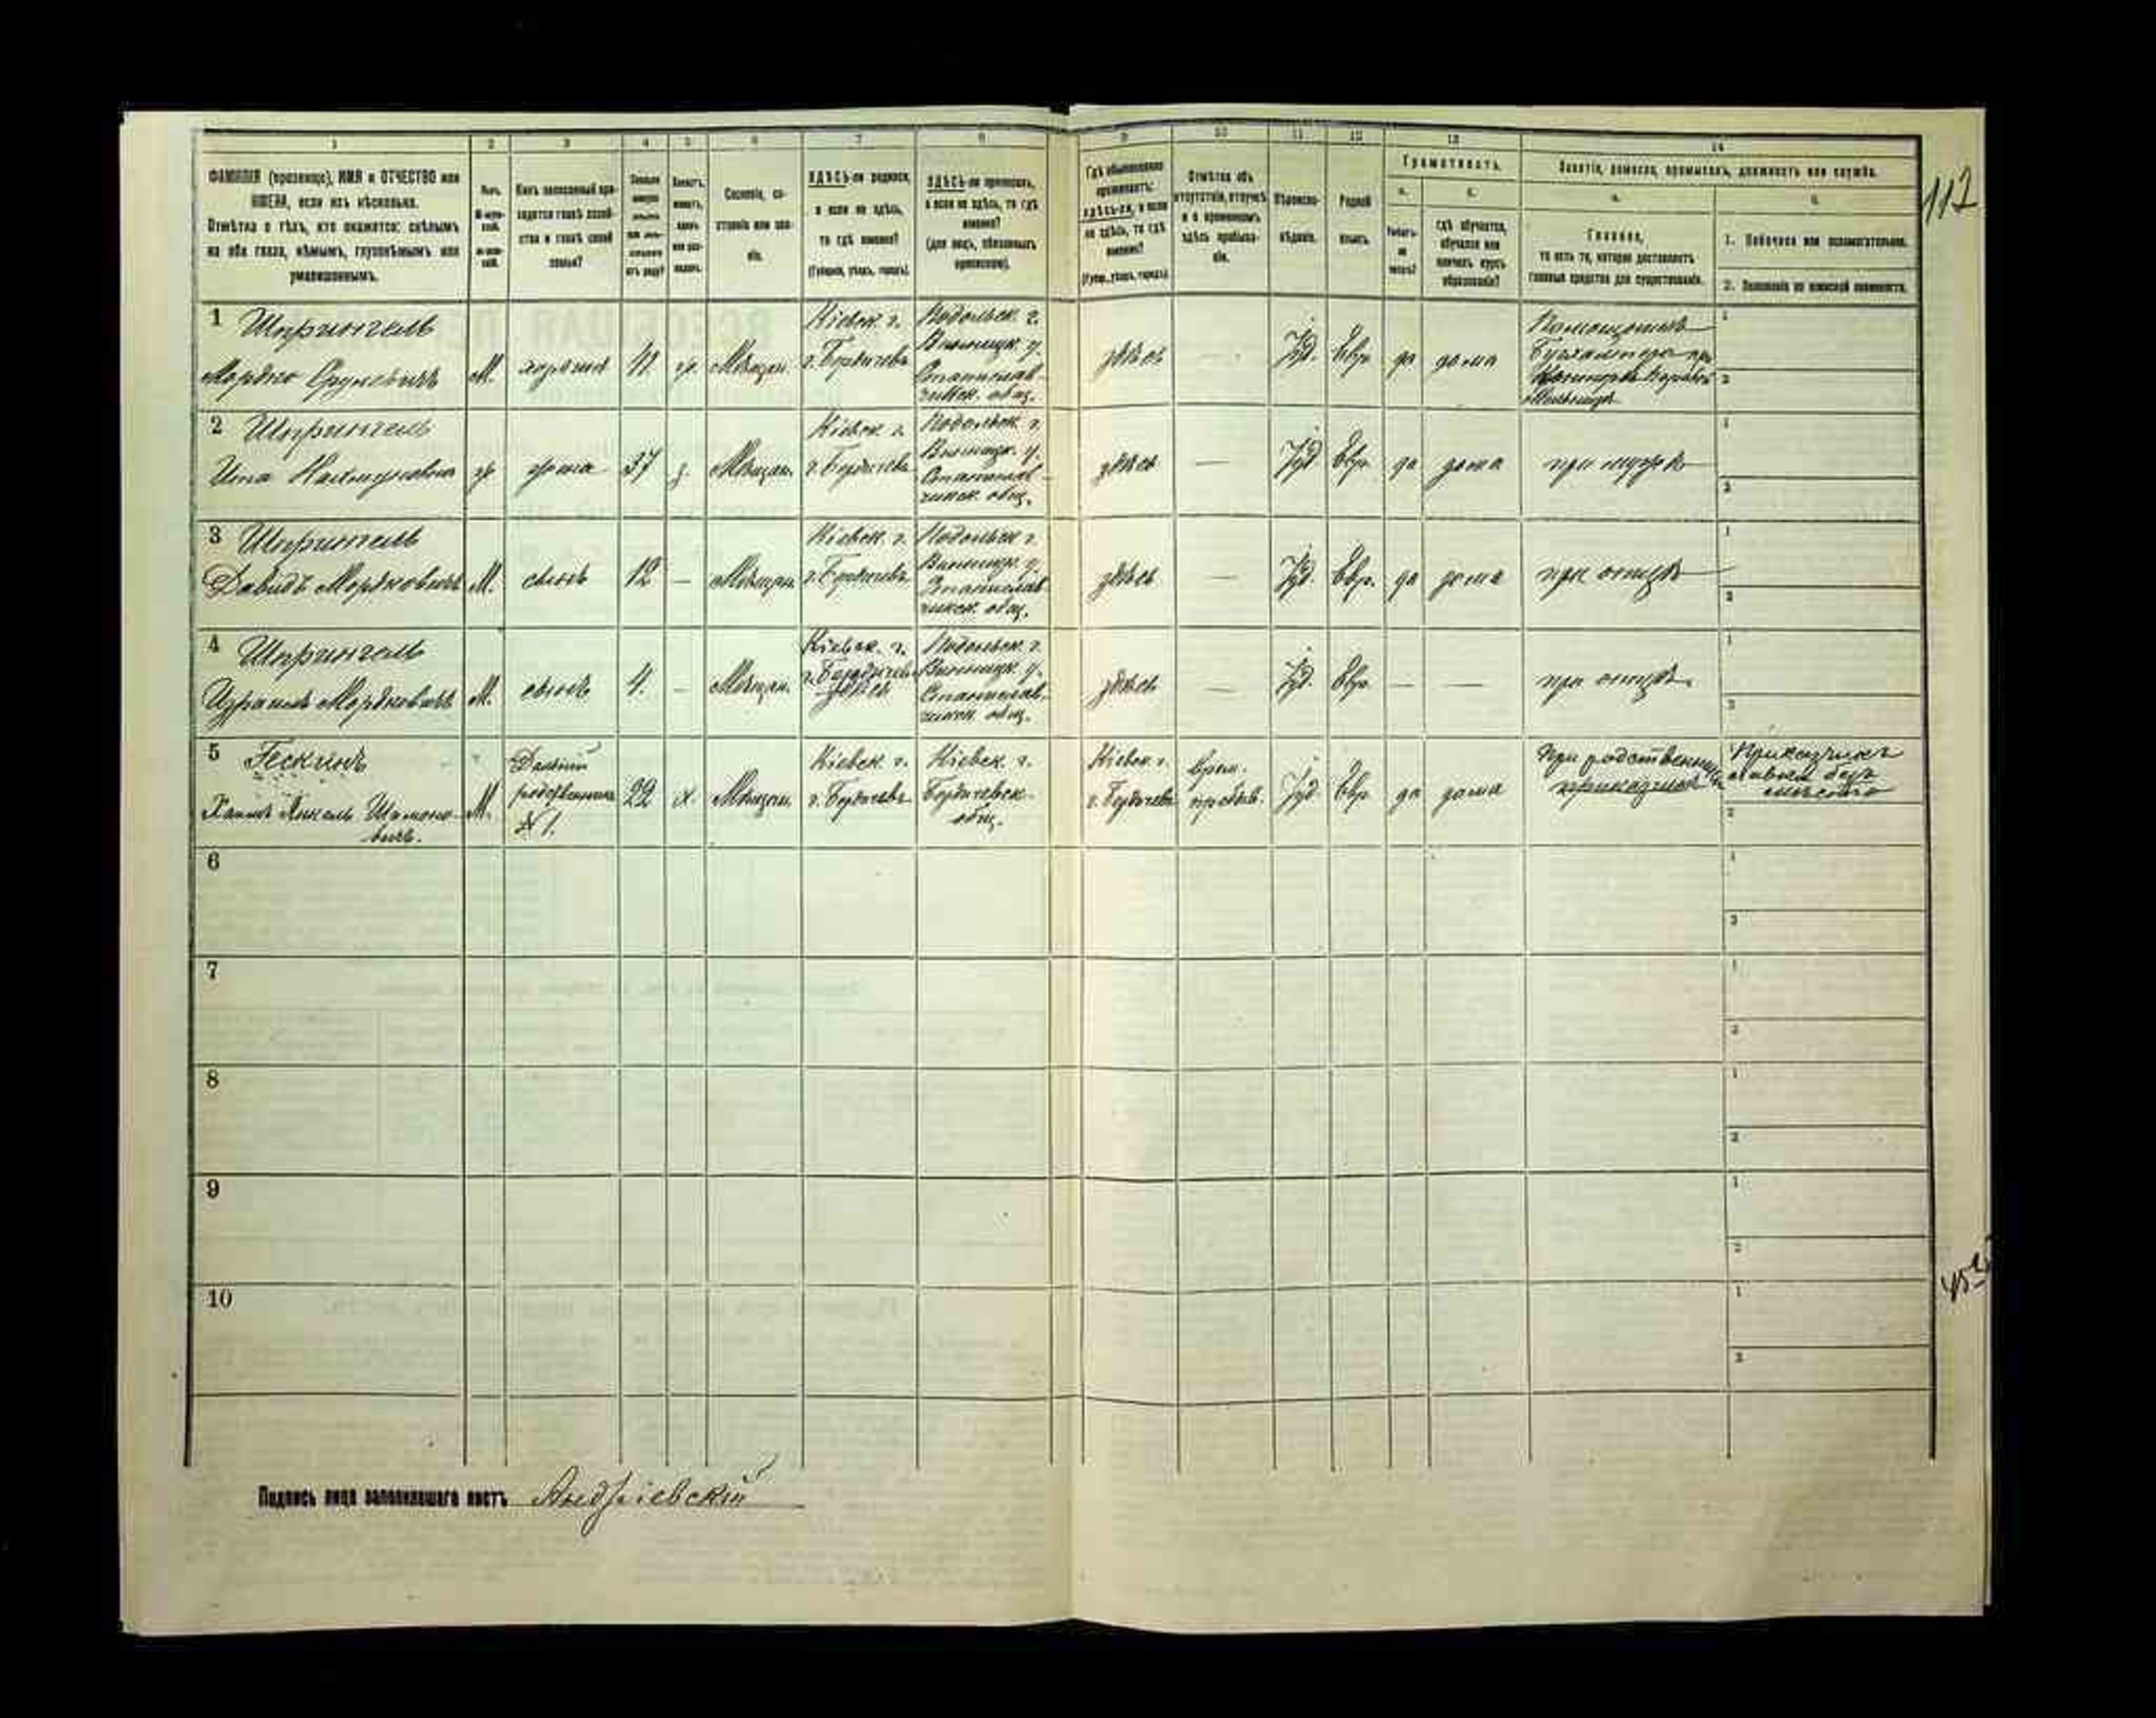 1 2 3 4 5 6 7 8 9 10 11 12 13 14
ФАМИЛІЯ (прозвище), ИМЯ и ОТЧЕСТВО или
ИМЕНА, если ихъ нѣсколько.
Отмѣтка о тѣхъ, кто окажется: слѣпымъ
на оба глаза, нѣмымъ, глухонѣмымъ или
умалишеннымъ.
Полъ.
Какъ записанный при-
ходится главѣ хозяй-
ства и главѣ своей
семьи?
Сословіе, со-
стояніе или зва-
ніе.
ЗДѢСЬ-ли родился,
а если не здѣсь,
то гдѣ именно?
(Губернія, уѣздъ, городъ).
ЗДѢСЬ-ли приписанъ,
а если не здѣсь, то гдѣ
именно?
(для лицъ, обязанныхъ
припискою).
Гдѣ обыкновенно
проживаетъ:
здѣсь-ли, а если
не здѣсь, то гдѣ
именно?
(Губер., уѣздъ, городъ)
Отмѣтка объ
отсутствіи, отлучкѣ
и о временномъ
здѣсь пребыва-
ніи.
Вѣроиспо-
вѣданіе.
Родной
языкъ.
Грамотность.
а. б.
Умѣетъ-
ли
читать?
гдѣ обучается,
обучался или
кончилъ курсъ
образованія?
Занятіе, ремесло, промыселъ, должность или служба.
а. б.
Главное,
то есть то, которое доставляетъ
главныя средства для существованія.
1. Побочное или вспомогательное.
2. Положеніе по воинской повинности.
117
1 Шпрингель
Мордко Сруновичъ
М.
хозяинъ
41
ж.
Мѣщан.
Кіевск. г.
г. Бердичевъ
Подольск. г.
Винницк. у.
Станислав-
чикск. общ.
здѣсь
—
Іуд.
Евр.
да
дома
Помощникъ
Бухгалтера при
Конторѣ Паровой
Мельницы
2 Шпрингель
Ита Нахмуновна
ж
жена
37
з.
Мѣщан.
Кіевск. г.
г. Бердичевъ
Подольск. г.
Винницк. у.
Станислав-
чикск. общ.
здѣсь
—
Іуд
Евр.
да
дома
при мужѣ
3 Шпрингель
Давидъ Мордковичъ
М.
сынъ
12
—
Мѣщан
Кіевск. г.
г. Бердичевъ
Подольск г.
Винницк. у.
Станислав
чикск. общ.
здѣсь
—
Іуд.
Евр.
да
дома
при отцѣ
4 Шпрингель
Израиль Мордковичъ
М.
сынъ
4.
–
Мѣщан.
Кіевск. г.
г. Бердичевъ
здѣсь
Подольск. г.
Винницк. у.
Станислав-
чикск. общ.
здѣсь
—
Іуд.
Евр.
—
—
при отцѣ.
5 Гескинъ
Хаимъ Янкель Шимоно-
вичъ.
М.
Дальній
родственникъ
№ 1.
22
х
Мѣщан.
Кіевск. г.
г. Бердичевъ
Кіевск. г.
Бердичевск.
общ.
Кіевск. г.
г. Бердичевъ
врем.
пребыв.
Іуд
Евр
да
дома
При родственникѣ
приказчикъ
Приказчикъ
безъ
мѣста
6
7
8
9
10
Подпись лица заполнившаго листъ Андріевскій